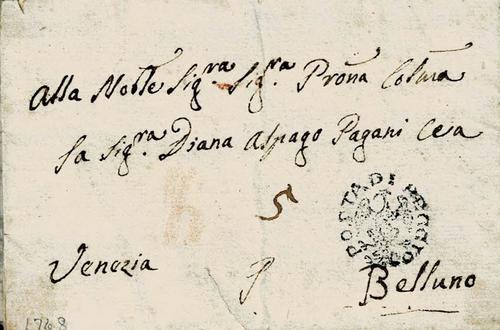 Alla Noble Sigra Sigra Prona Colma
la Sigra Diana Alpago Pagani Cesa
5
POSTA DI REGGIO
Venezia p Belluno
1768